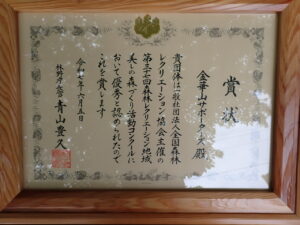 賞状
金華山サポーターズ 殿
貴団体は一般社団法人全国森林
レクリエーション協会主催の
第三十四森林レクリエーション地域
美しの森づくり活動コンクールに
おいて優秀と認められたので
これを賞します
令和七年六月五日
林野庁長官 青山豊久